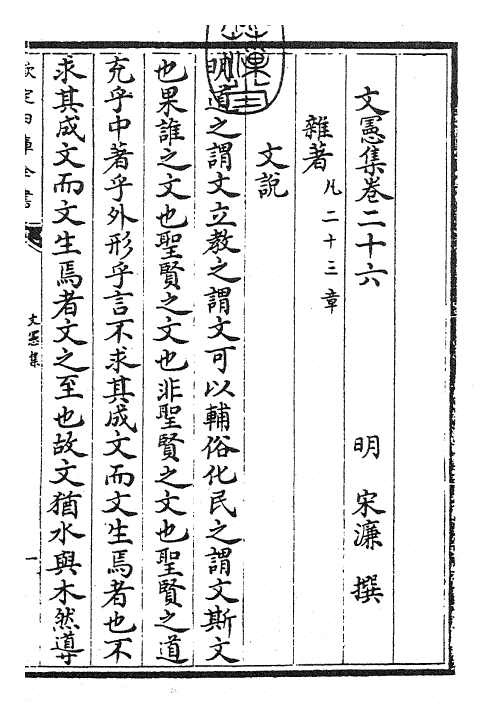 文憲集卷二十六
明 宋濂 撰
雜著 凡二十三章
文說
明道之謂文立教之謂文可以輔俗化民之謂文斯文
也果誰之文也聖賢之文也非聖賢之文也聖賢之道
充乎中著乎外形乎言不求其成文而文生焉者也不
求其成文而文生焉者文之至也故文猶水與木然導
欽定四庫全書
文憲集
一